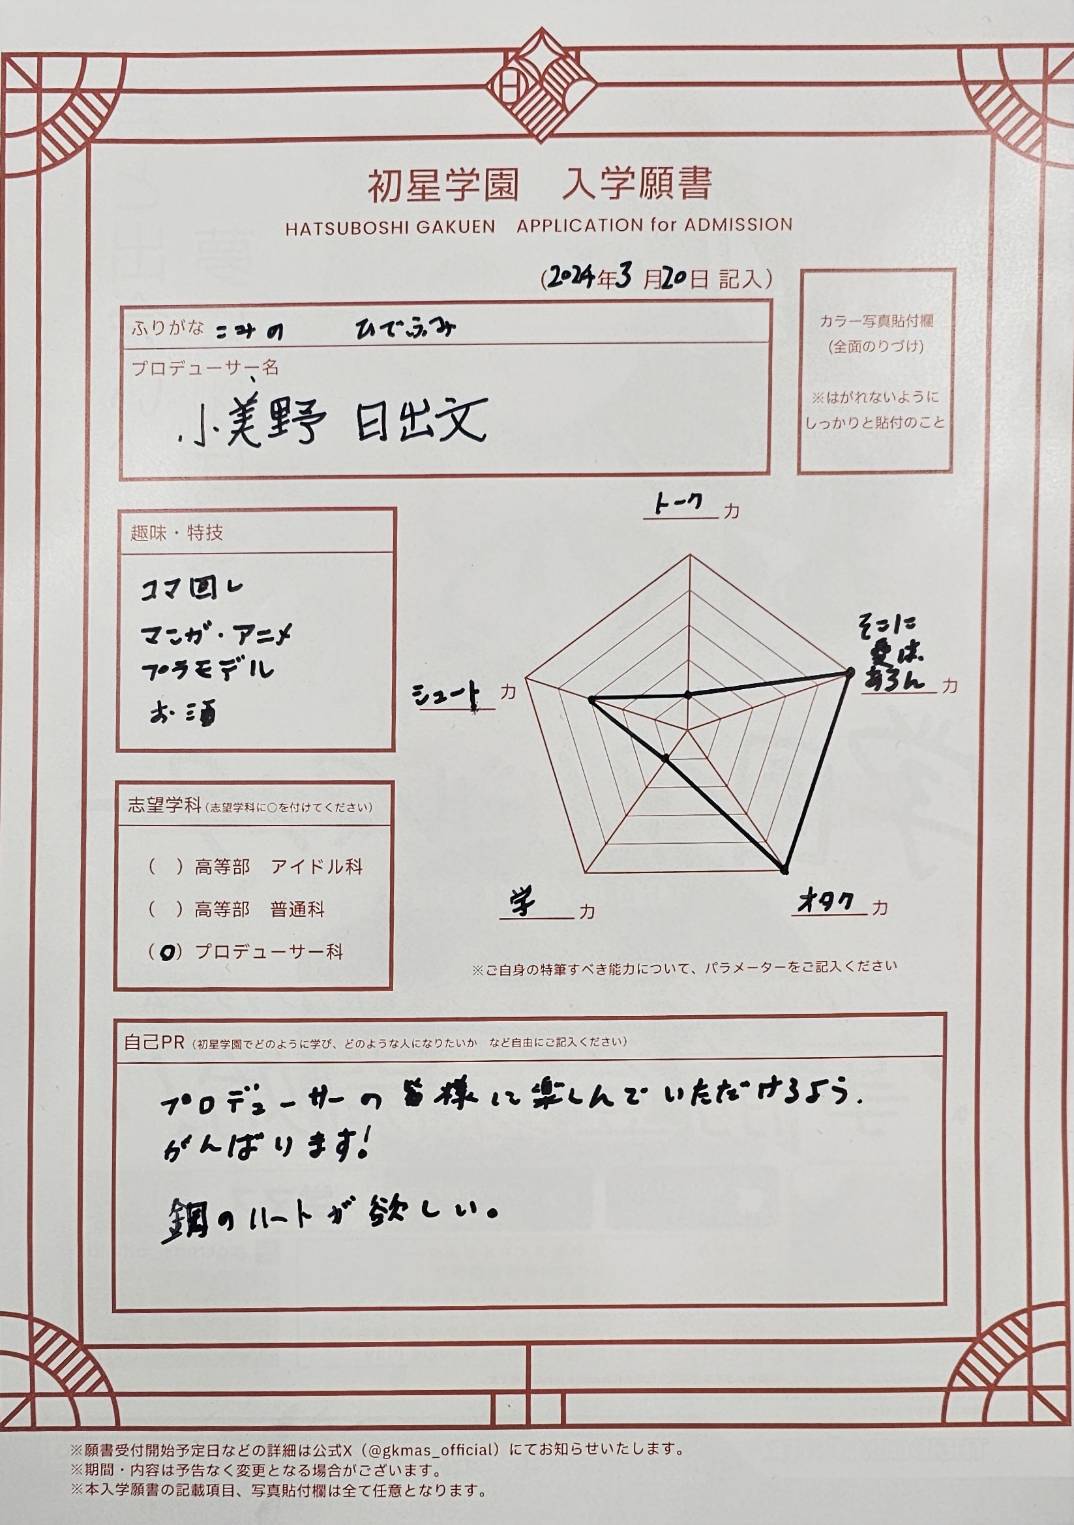 初星学園 入学願書
HATSUBOSHI GAKUEN APPLICATION for ADMISSION
(2024年3月20日 記入)
ふりがな こみの ひでふみ
プロデューサー名
小美野 日出文
カラー写真貼付欄
(全面のりづけ)
※はがれないように
しっかりと貼付のこと
趣味・特技
コマ回し
マンガ・アニメ
プラモデル
お酒
トーク力
そこに
愛は
あるん力
シュート力
学力
オタク力
※ご自身の特筆すべき能力について、パラメーターをご記入ください
志望学科(志望学科に○を付けてください)
( )高等部 アイドル科
( )高等部 普通科
(○)プロデューサー科
自己PR(初星学園でどのように学び、どのような人になりたいか など自由にご記入ください)
プロデューサーの皆様に楽しんでいただけるよう、
がんばります!
鋼のハートが欲しい。
※願書受付開始予定日などの詳細は公式X(@gkmas_official)にてお知らせいたします。
※期間・内容は予告なく変更となる場合がございます。
※本入学願書の記載項目、写真貼付欄は全て任意となります。